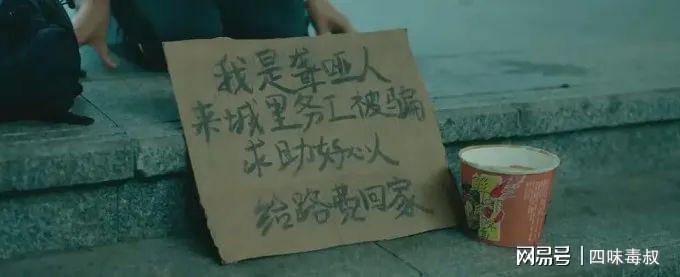 我是聋哑人
来城里务工被骗
求助好心人
给路费回家
网易号 四味毒叔